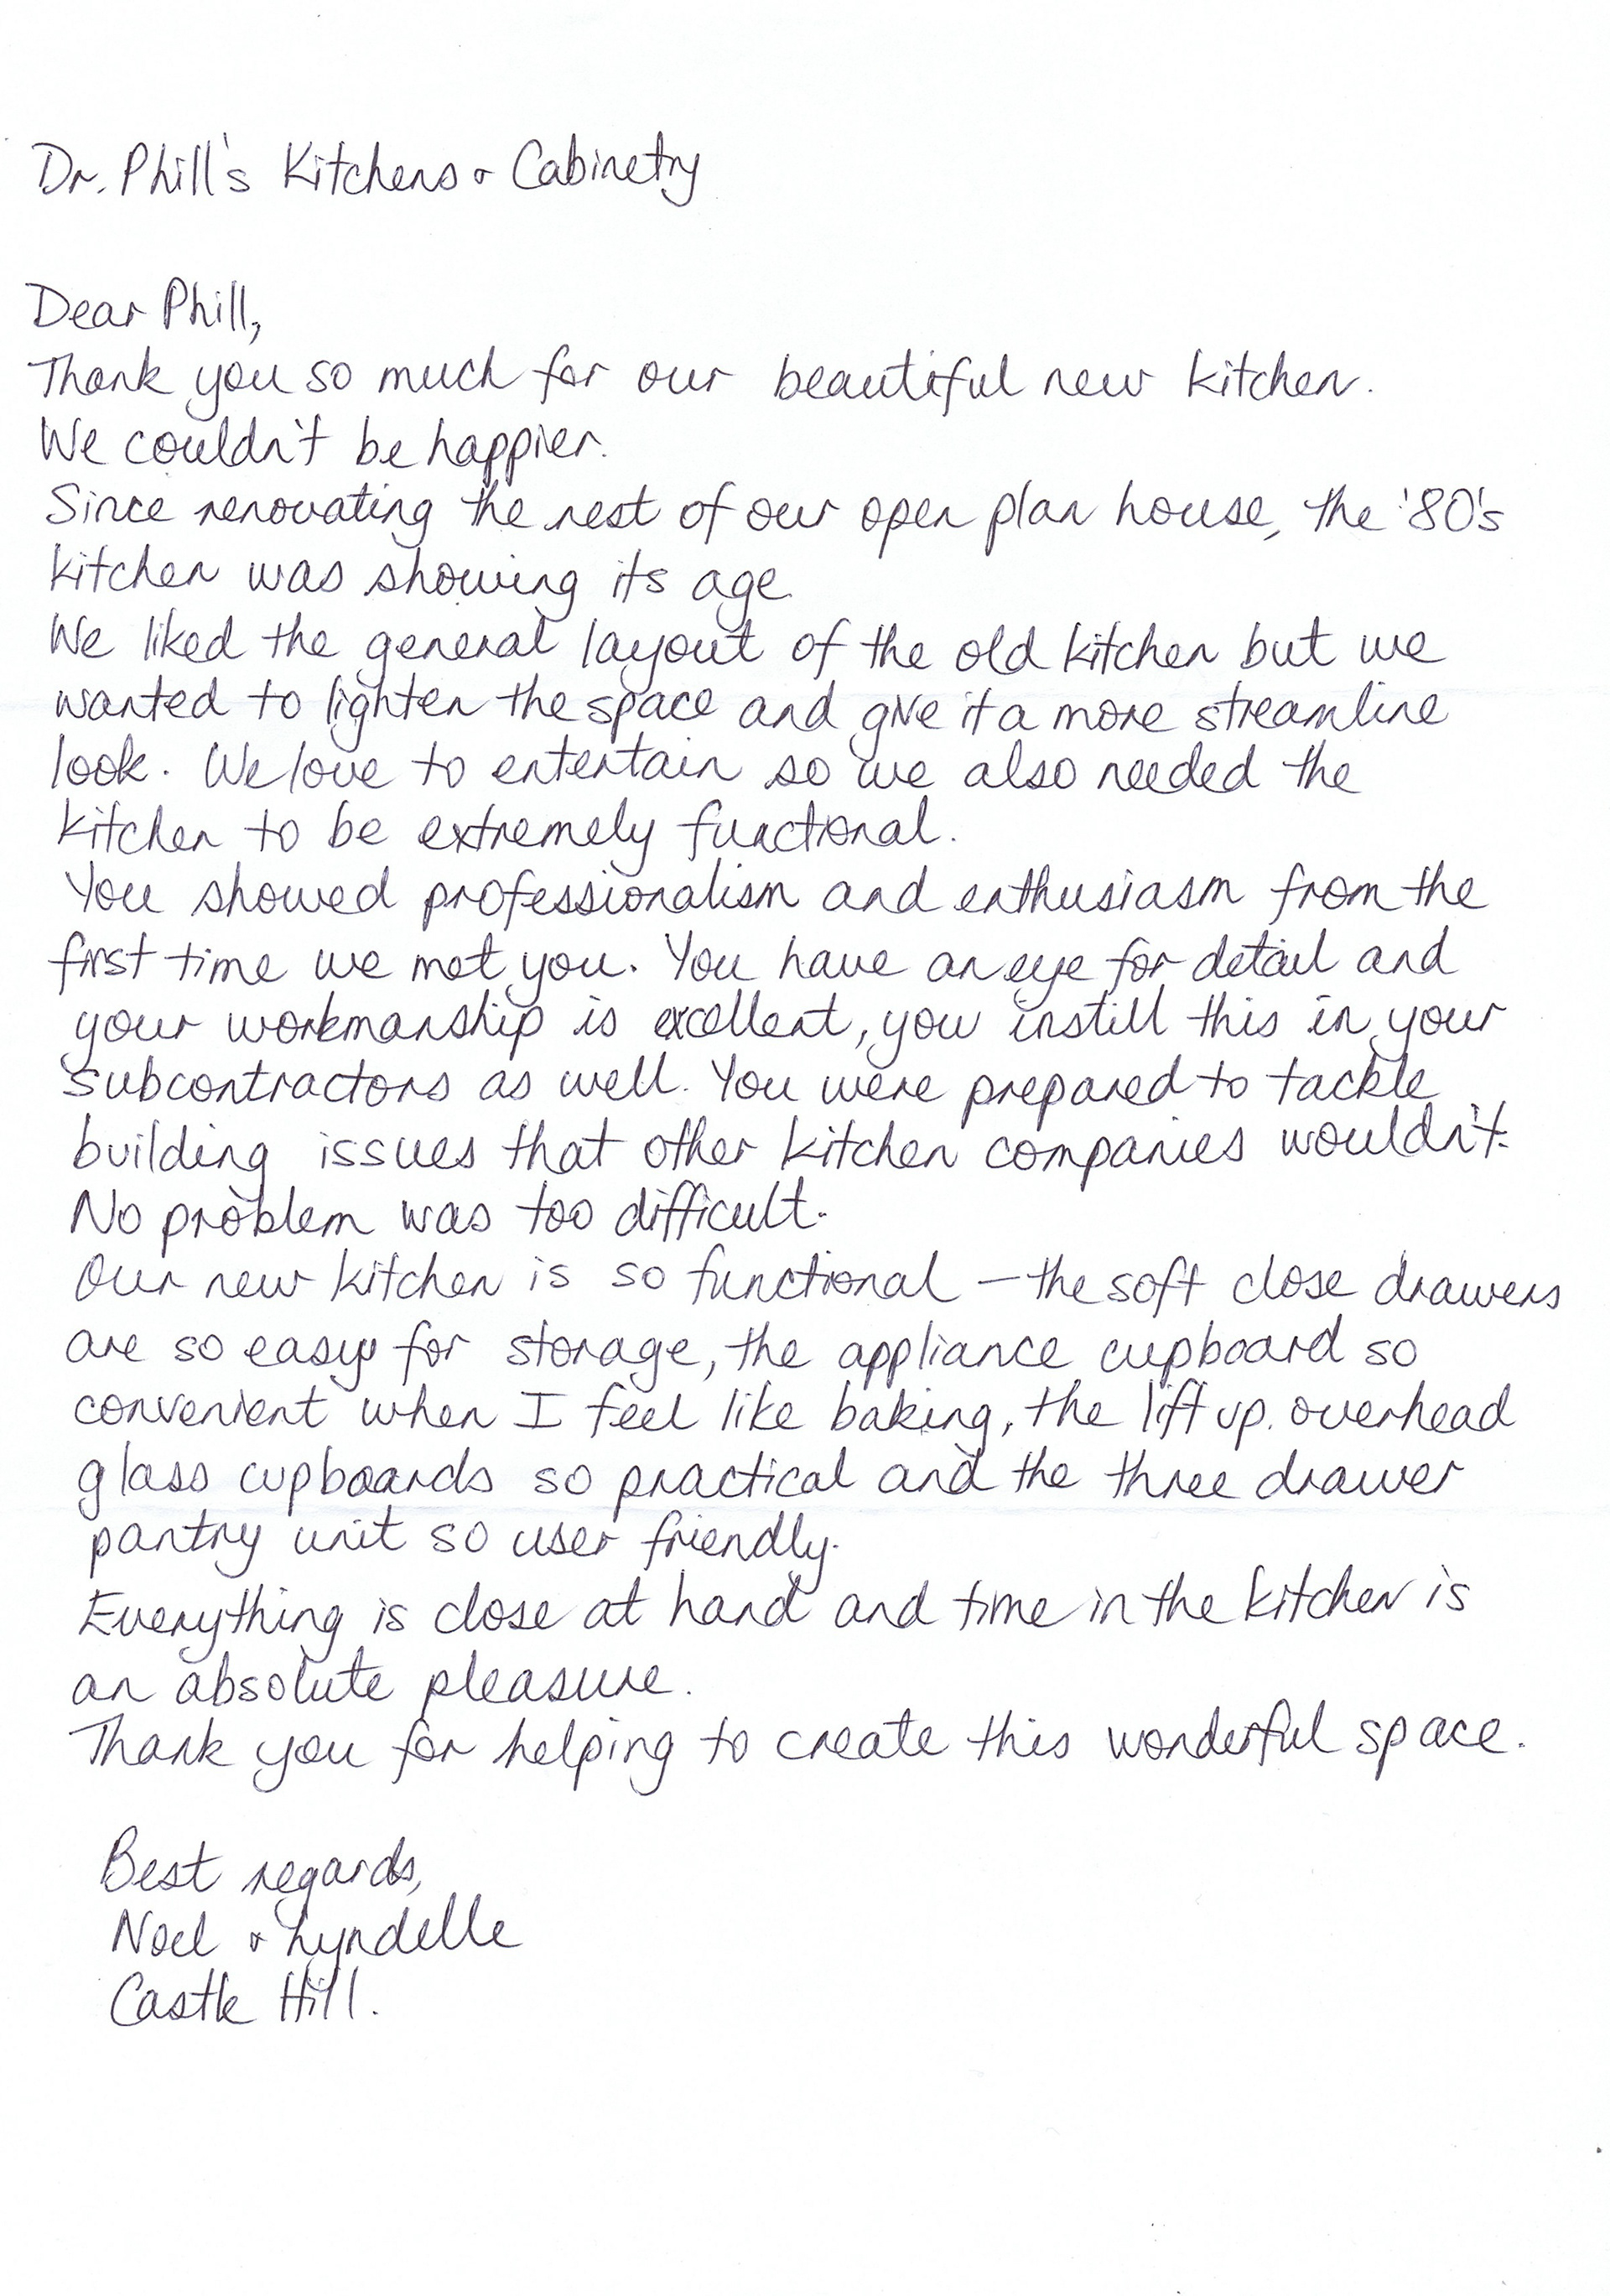 Dr. Phill's Kitchens & Cabinetry
Dear Phill,
Thank you so much for our beautiful new kitchen.
We couldn't be happier.
Since renovating the rest of our open plan house, the '80's
kitchen was showing its age.
We liked the general layout of the old kitchen but we
wanted to lighten the space and give it a more streamline
look. We love to entertain so we also needed the
kitchen to be extremely functional.
You showed professionalism and enthusiasm from the
first time we met you. You have an eye for detail and
your workmanship is excellent, you instill this in your
subcontractors as well. You were prepared to tackle
building issues that other kitchen companies wouldn't.
No problem was too difficult.
Our new kitchen is so functional – the soft close drawers
are so easy for storage, the appliance cupboard so
convenient when I feel like baking, the lift up overhead
glass cupboards so practical and the three drawer
pantry unit so user friendly.
Everything is close at hand and time in the kitchen is
an absolute pleasure.
Thank you for helping to create this wonderful space.
Best regards,
Noel & Lyndelle
Castle Hill.